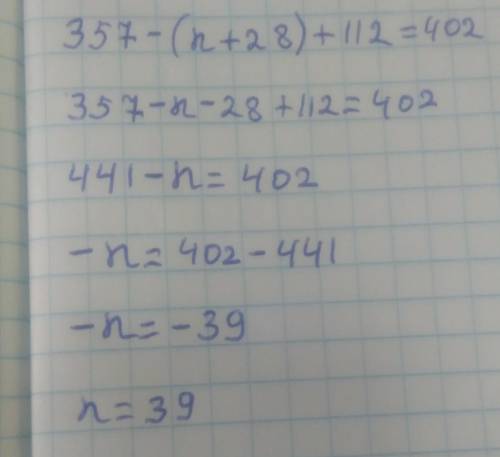 357-(n+28)+112=402
357-n-28+112=402
441-n=402
-n=402-441
-n=-39
n=39